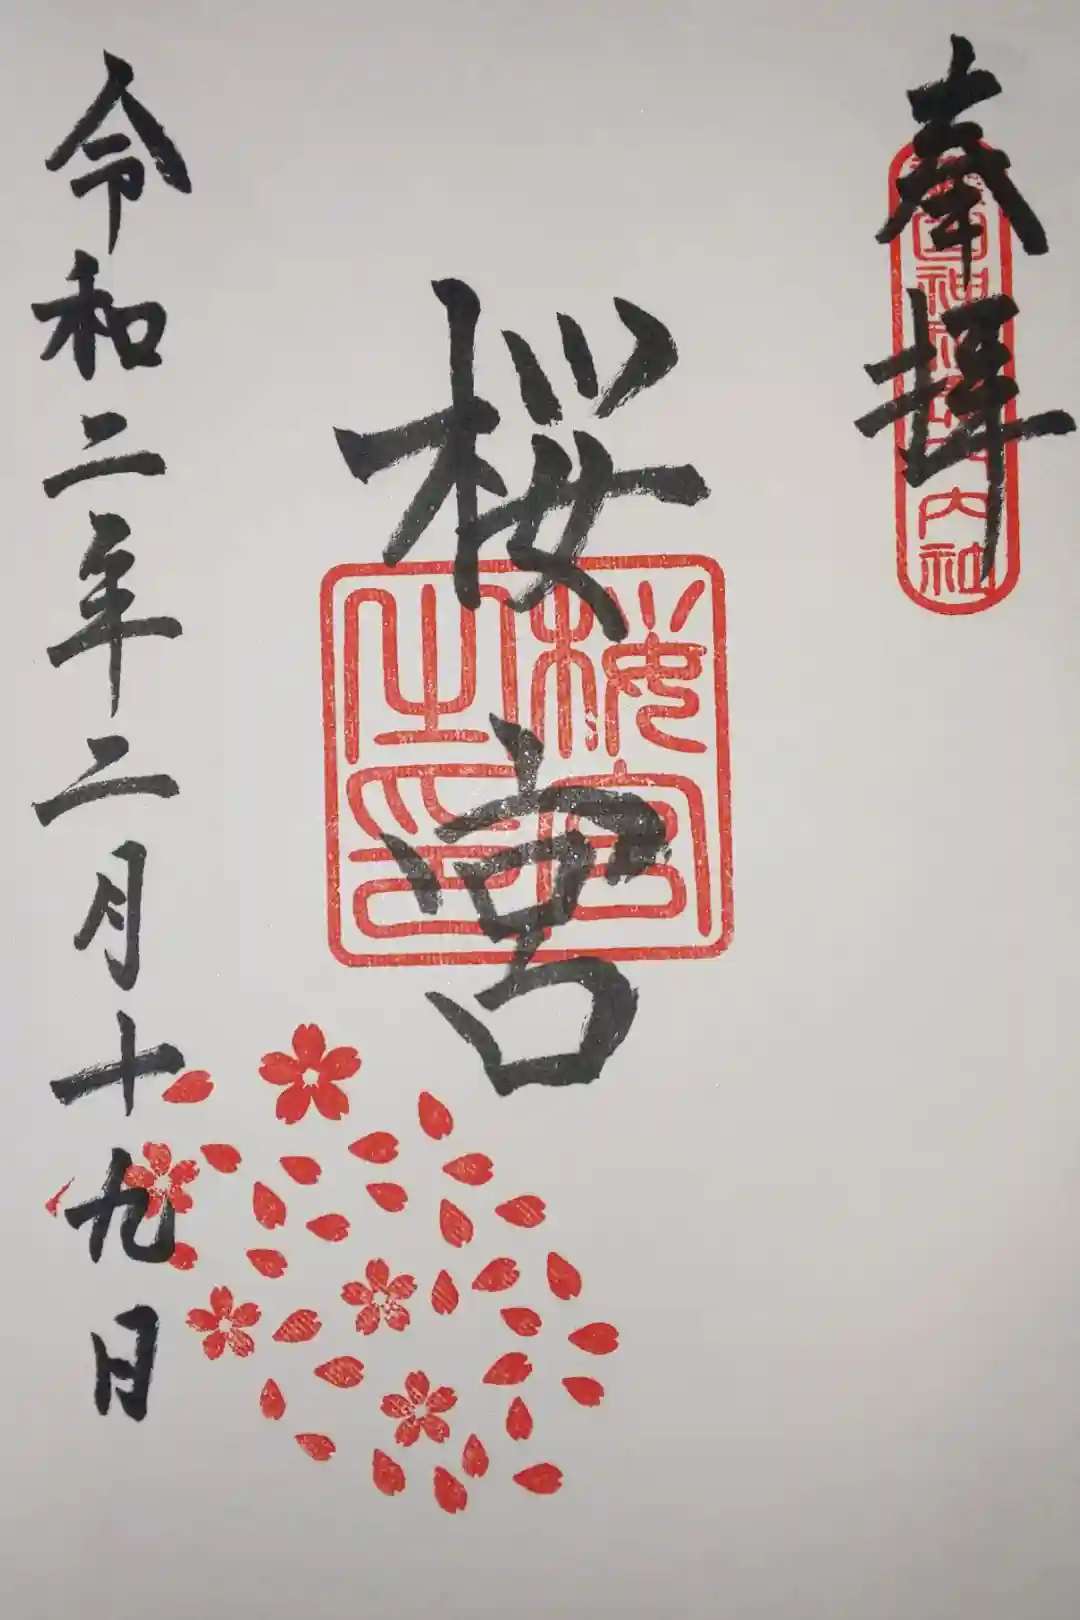 奉拝
神社
内社
桜宮
桜宮之印
令和二年二月十九日